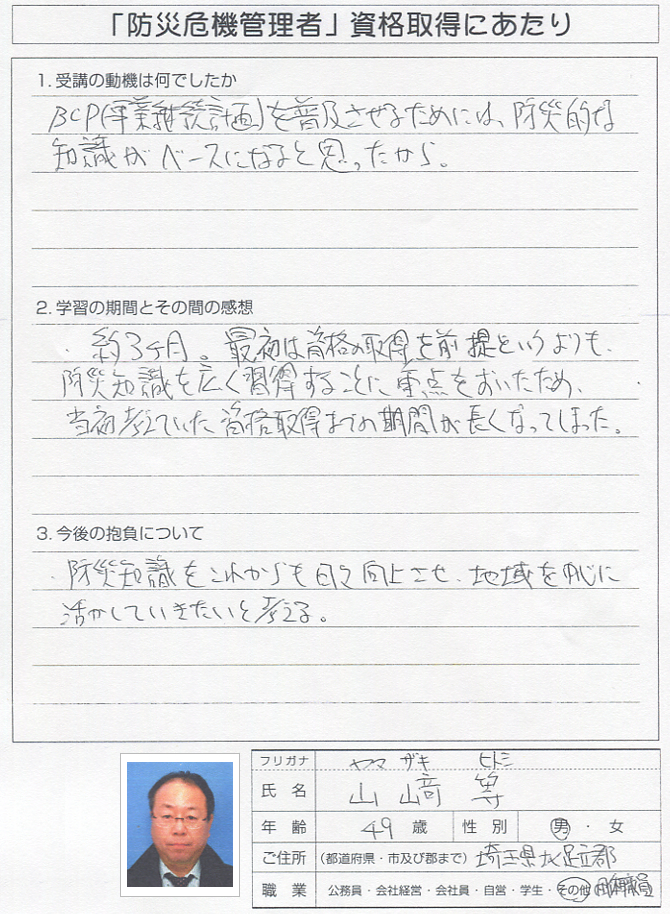 「防災危機管理者」資格取得にあたり
1. 受講の動機は何でしたか
BCP(事業継続計画)を普及させるためには、防災的な
知識がベースになると思ったから。
2. 学習の期間とその間の感想
約3ヶ月。最初は資格の取得を前提というよりも、
防災知識を広く習得することに重点をおいたため、
当初考えていた資格取得までの期間が長くなってしまった。
3. 今後の抱負について
防災知識をこれからも日々向上させ、地域を中心に
活かしていきたいと考える。
フリガナ ヤマザキ ヒトシ
氏名 山﨑 等
年齢 49歳 性別 男・女
ご住所 (都道府県・市及び郡まで) 埼玉県北足立郡
職業 公務員・会社経営・会社員・自営・学生・その他 団体職員